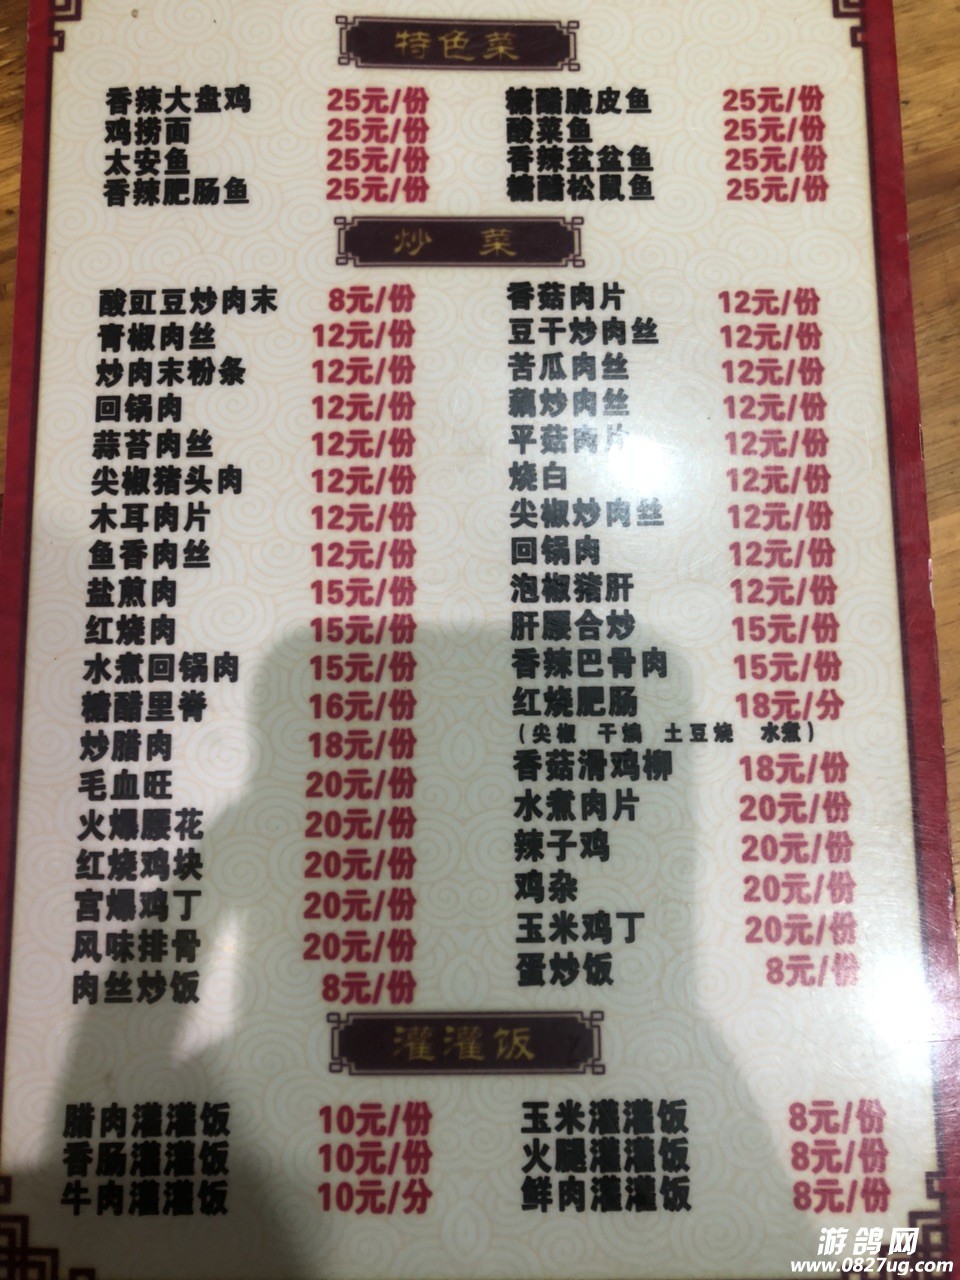 特色菜
香辣大盘鸡 25元/份 糖醋脆皮鱼 25元/份
鸡捞面 25元/份 酸菜鱼 25元/份
太安鱼 25元/份 香辣盆盆鱼 25元/份
香辣肥肠鱼 25元/份 糖醋松鼠鱼 25元/份
炒 菜
酸豇豆炒肉末 8元/份 香菇肉片 12元/份
青椒肉丝 12元/份 豆干炒肉丝 12元/份
炒肉末粉条 12元/份 苦瓜肉丝 12元/份
回锅肉 12元/份 藕炒肉丝 12元/份
蒜苔肉丝 12元/份 平菇肉片 12元/份
尖椒猪头肉 12元/份 烧白 12元/份
木耳肉片 12元/份 尖椒炒肉丝 12元/份
鱼香肉丝 12元/份 回锅肉 12元/份
盐煎肉 15元/份 泡椒猪肝 12元/份
红烧肉 15元/份 肝腰合炒 15元/份
水煮回锅肉 15元/份 香辣巴骨肉 15元/份
糖醋里脊 16元/份 红烧肥肠 18元/分
(尖椒 干煸 土豆烧 水煮)
炒腊肉 18元/份 香菇滑鸡柳 18元/份
毛血旺 20元/份 水煮肉片 20元/份
火爆腰花 20元/份 辣子鸡 20元/份
红烧鸡块 20元/份 鸡杂 20元/份
宫爆鸡丁 20元/份 玉米鸡丁 20元/份
风味排骨 20元/份 蛋炒饭 8元/份
肉丝炒饭 8元/份
灌灌饭
腊肉灌灌饭 10元/份 玉米灌灌饭 8元/份
香肠灌灌饭 10元/份 火腿灌灌饭 8元/份
牛肉灌灌饭 10元/分 鲜肉灌灌饭 8元/份
游鸽网
www.0827ug.com